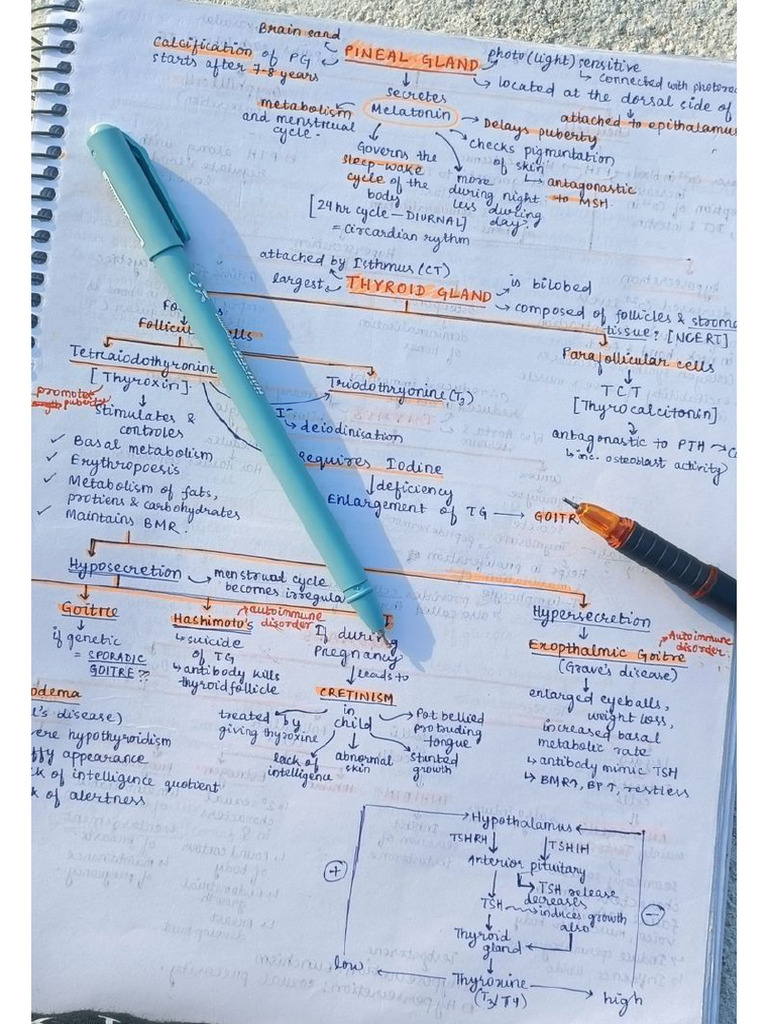 Brain sand
Calcification of PG
starts after 7-8 years
PINEAL GLAND
photo (light) sensitive
connected with
located at the dorsal side of
attached to epithalamus
secretes
Melatonin
metabolism
and menstrual
cycle.
Delays puberty
checks pigmentation
of skin
antagonastic
to MSH.
Governs the
sleep-wake
cycle of the
body
more
during night
less during
day.
[24 hr cycle — DIURNAL]
= circardian rythm
attached by Isthmus (CT)
largest
THYROID GLAND
is bilobed
composed of follicles & stroma
tissue? [NCERT]
Tetraiodothyronine
[Thyroxin]
Triodothryonine (T3)
Parafollicular cells
TCT
[Thyrocalcitonin]
antagonastic to PTH
inc. osteoblast activity)
promotes
puberty
stimulates &
controles
I⁻
deiodinisation
✓ Basal metabolism
✓ Erythropoesis
✓ Metabolism of fats,
protiens & carbohydrates
✓ Maintains BMR.
requires Iodine
deficiency
Enlargement of TG → GOITR
Hyposecretion
menstrual cycle
becomes irregula
Hypersecretion
Goitre
if genetic
= SPORADIC
GOITRE?
Hashimoto's
autoimmune
disorder
suicide
of TG
antibody kills
thyroid follicle
If during
pregnancy
leads to
CRETINISM
in
child
treated by
giving thyroxine
lack of
intelligence
abnormal
skin
stunted
growth
Pot bellied
protruding
tongue
Exopthalmic Goitre
Autoimmune
disorder
(Grave's disease)
enlarged eyeballs,
weight loss,
increased basal
metabolic rate
antibody mimic TSH
BMR↑, BP↑, restless
odema
's disease)
ere hypothyroidism
ffy appearance
ck of intelligence quotient
k of alertness
Hypothalamus
TSHRH
TSHIH
Anterior pituitary
TSH release
decreases
TSH
induces growth
also
Thyroid
gland
Thyroxine
(T3/T4)
low
high
+
−